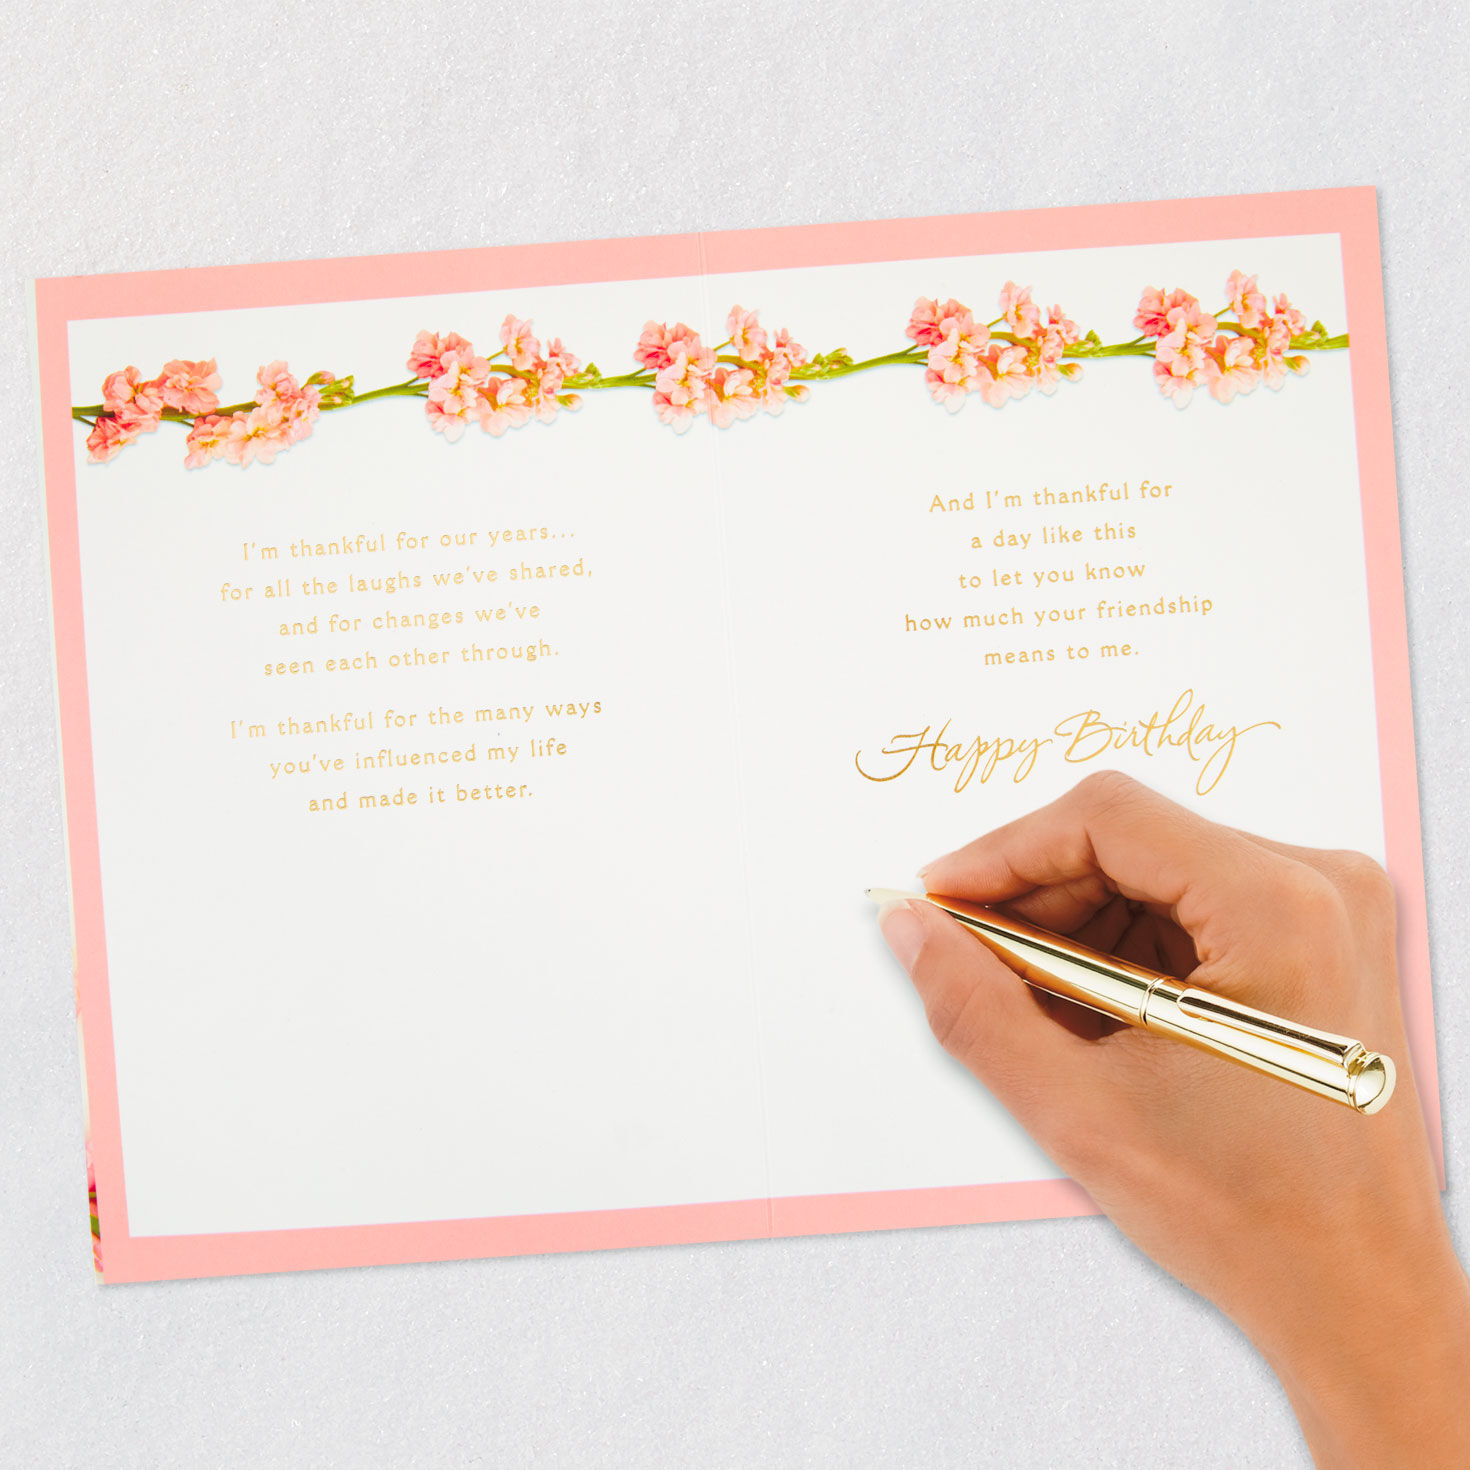 I'm thankful for our years...
for all the laughs we've shared,
and for changes we've
seen each other through.
I'm thankful for the many ways
you've influenced my life
and made it better.
And I'm thankful for
a day like this
to let you know
how much your friendship
means to me.
Happy Birthday